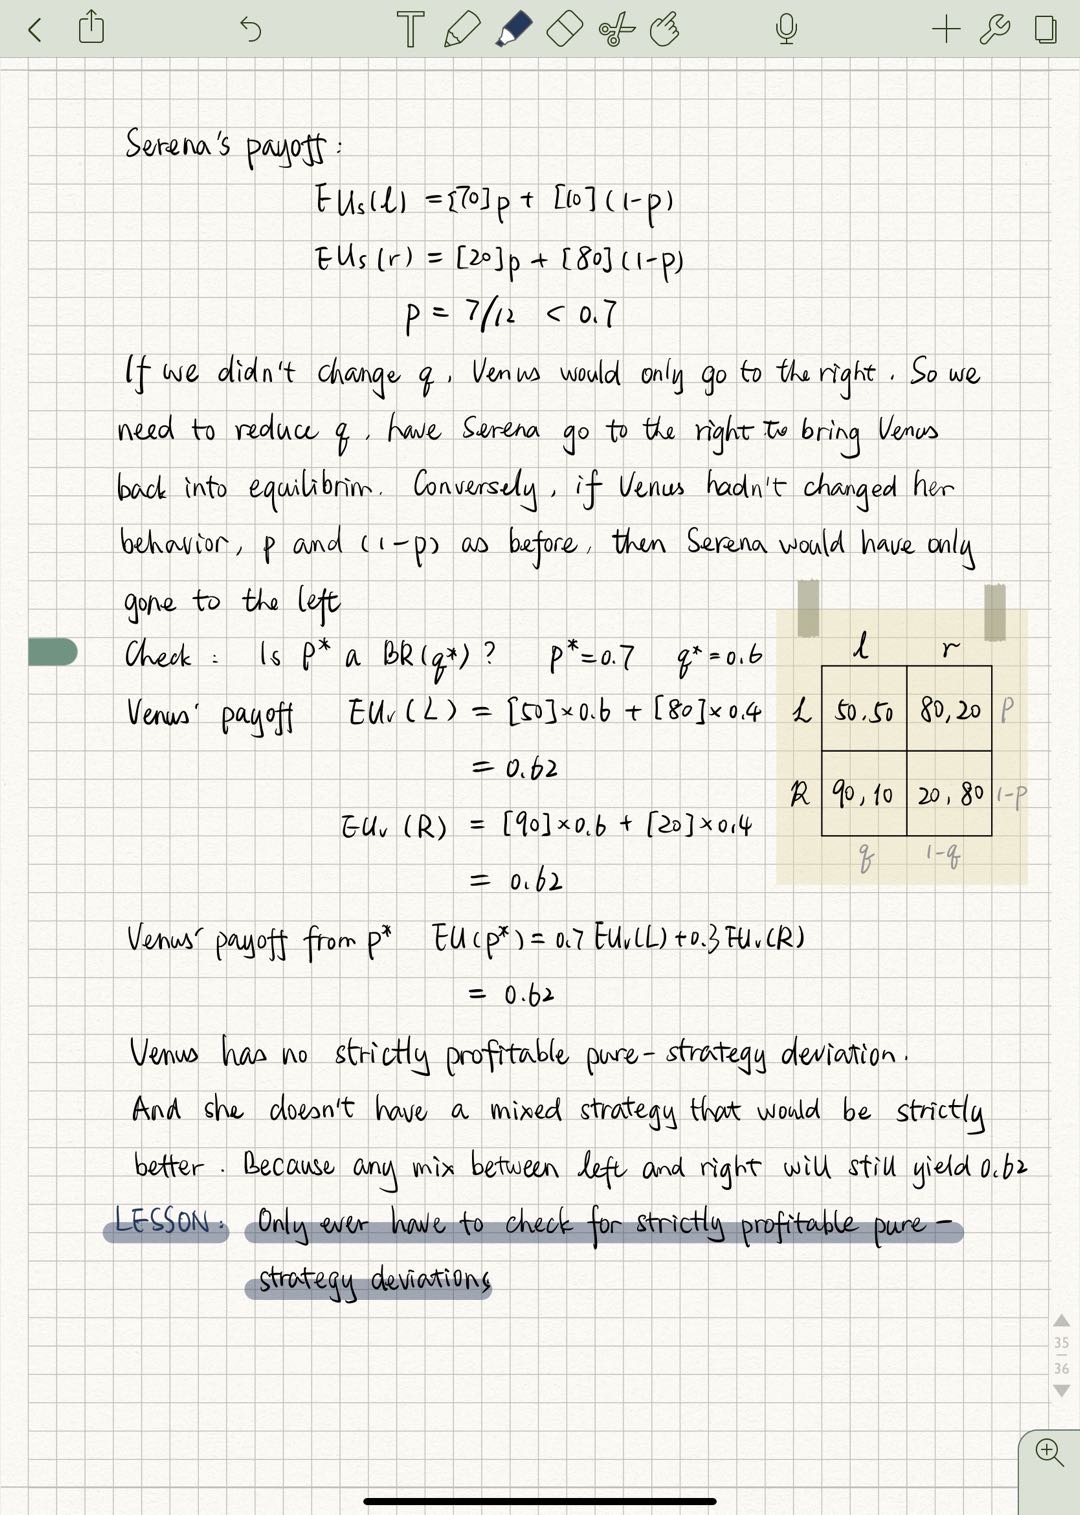 Serena's payoff:
EUs(l) = [70]p + [10](1-p)
EUs(r) = [20]p + [80](1-p)
p = 7/12 < 0.7
If we didn't change q, Venus would only go to the right. So we
need to reduce q, have Serena go to the right to bring Venus
back into equilibrim. Conversely, if Venus hadn't changed her
behavior, p and (1-p) as before, then Serena would have only
gone to the left
Check: Is P* a BR(q*)? p*=0.7 q*=0.6
Venus' payoff EUv(L) = [50]×0.6 + [80]×0.4
= 0.62
EUv(R) = [90]×0.6 + [20]×0.4
= 0.62
l r
L 50,50 80,20 p
R 90,10 20,80 1-p
q 1-q
Venus' payoff from p* EU(p*) = 0.7 EUv(L)+0.3 EUv(R)
= 0.62
Venus has no strictly profitable pure-strategy deviation.
And she doesn't have a mixed strategy that would be strictly
better. Because any mix between left and right will still yield 0.62
LESSON: Only ever have to check for strictly profitable pure-
strategy deviations
35
36